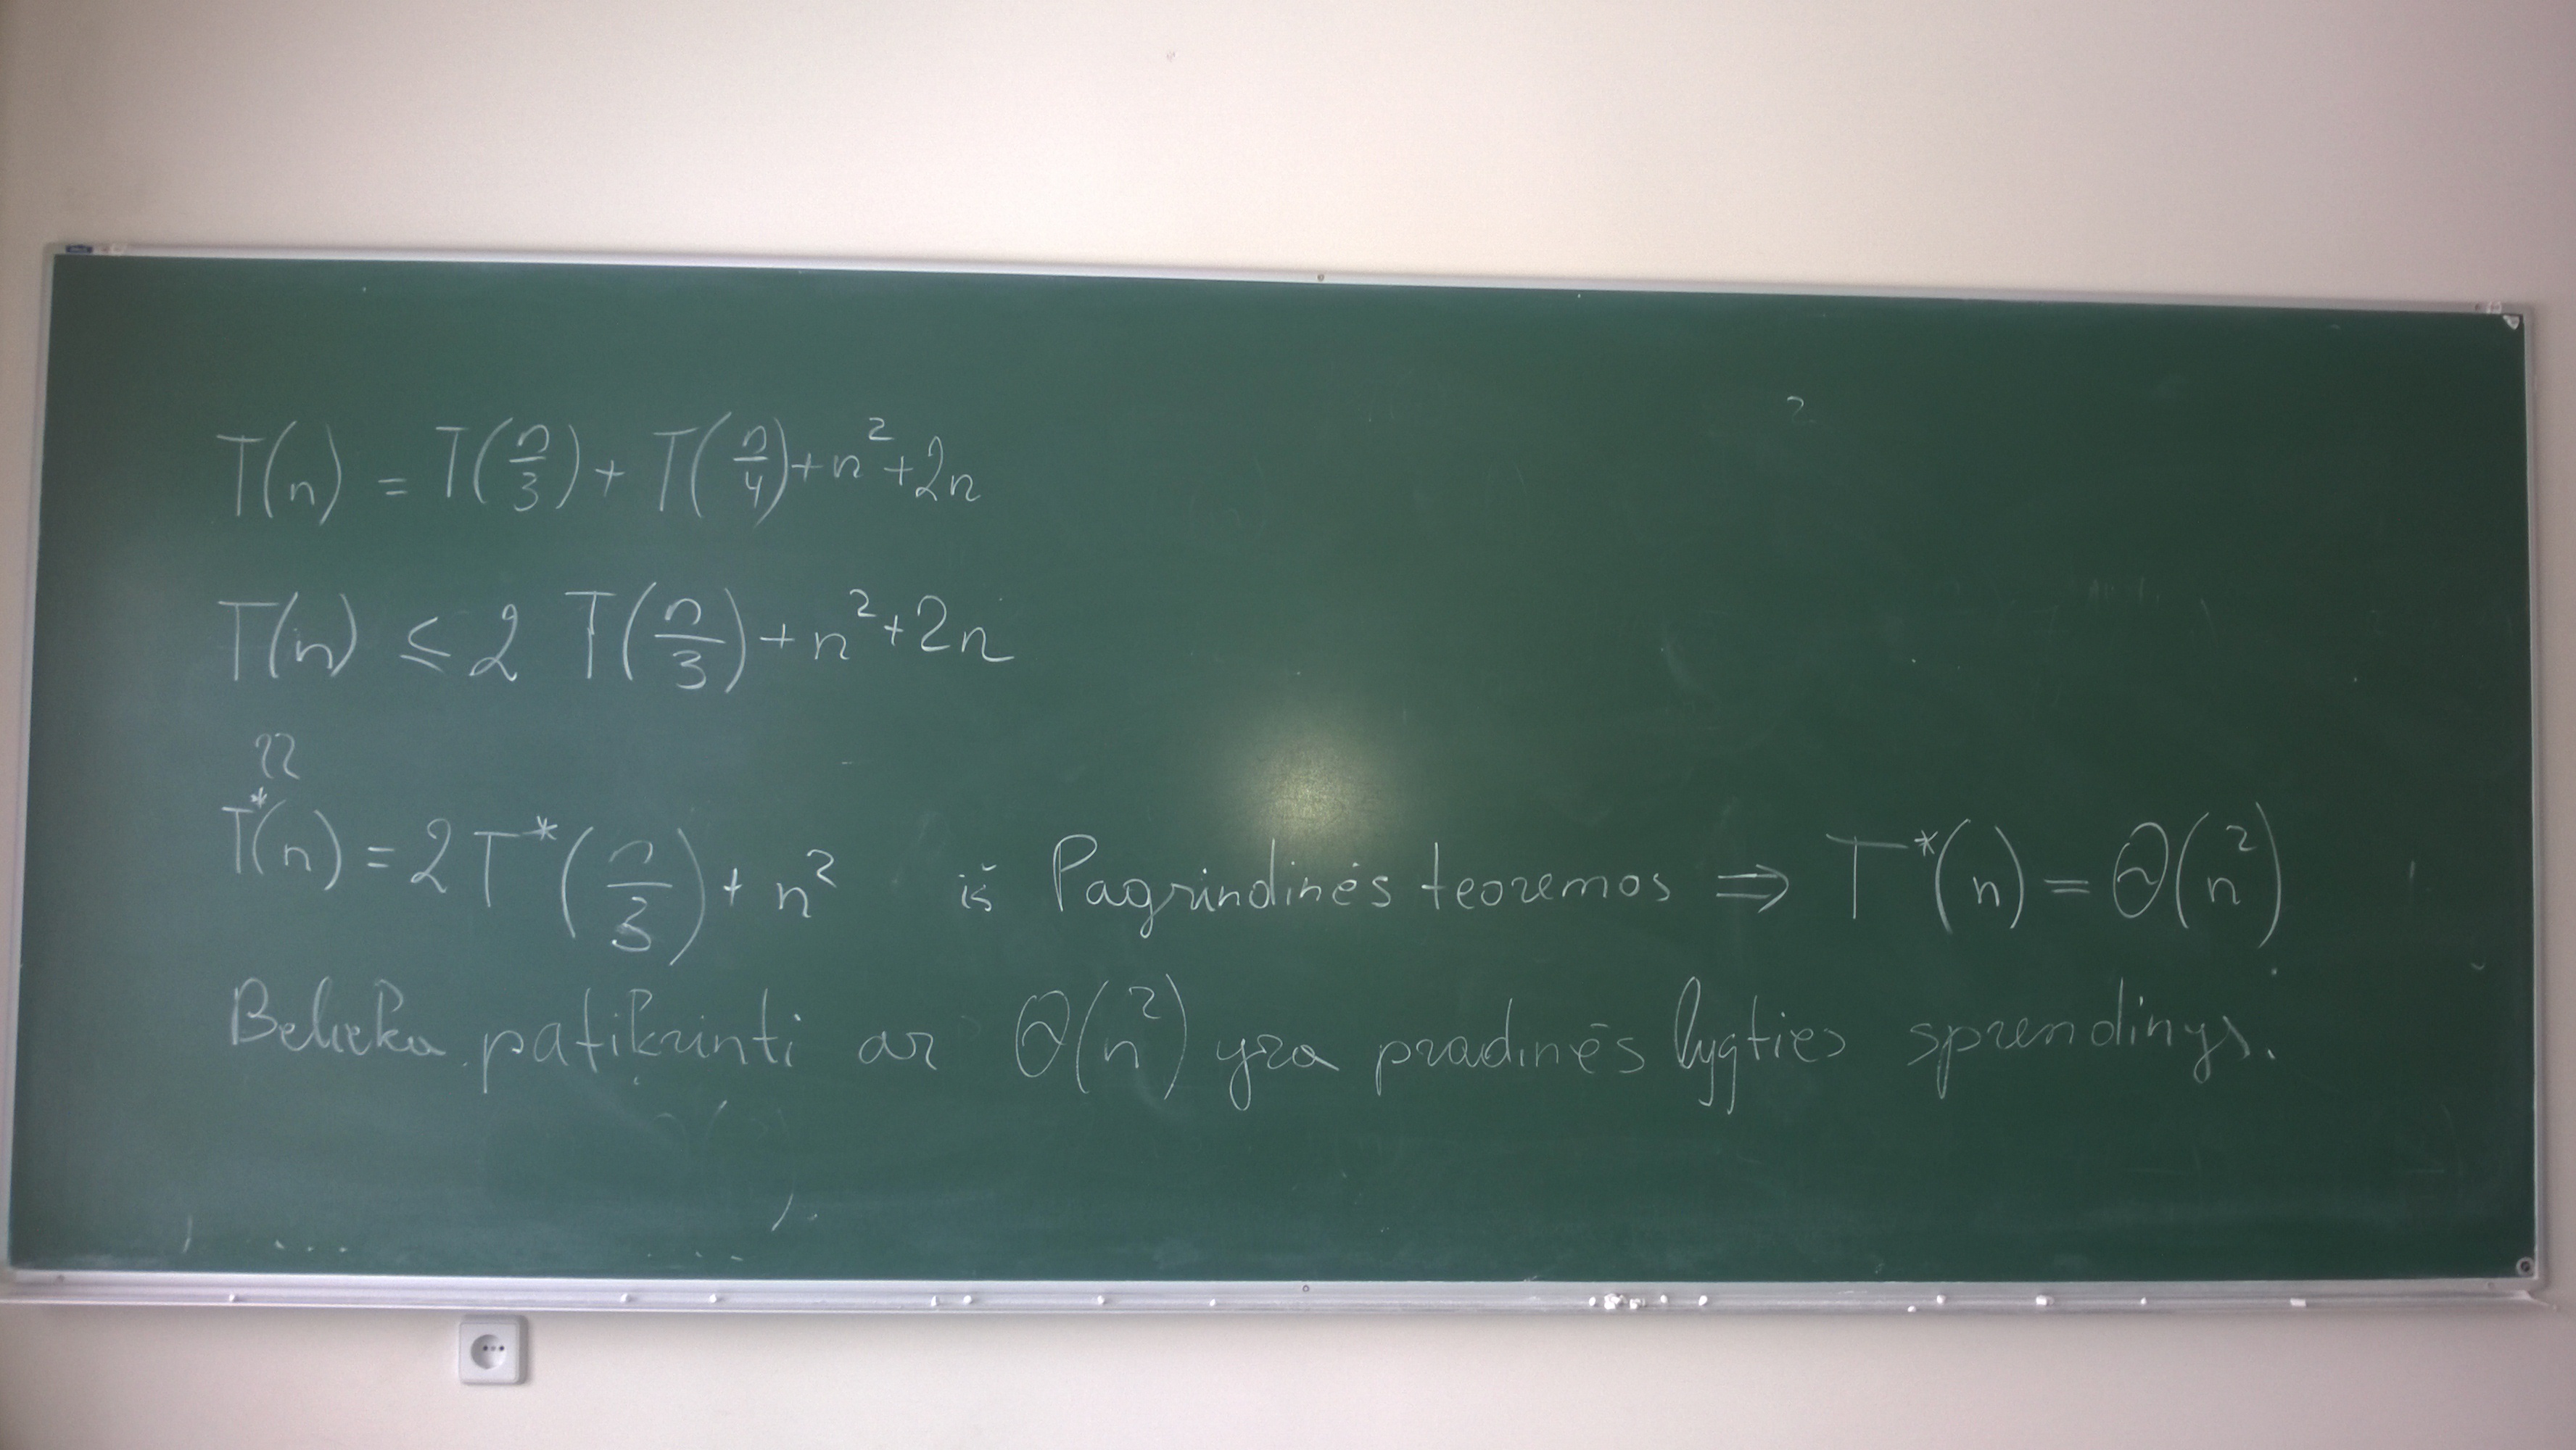 T(n) = T(n/3) + T(n/4) + n² + 2n
T(n) ≤ 2 T(n/3) + n² + 2n
≀≀
T*(n) = 2T*(n/3) + n² iš Pagrindinės teoremos ⇒ T*(n) = Θ(n²)
Belieka patikrinti ar Θ(n²) yra pradinės lygties sprendinys.